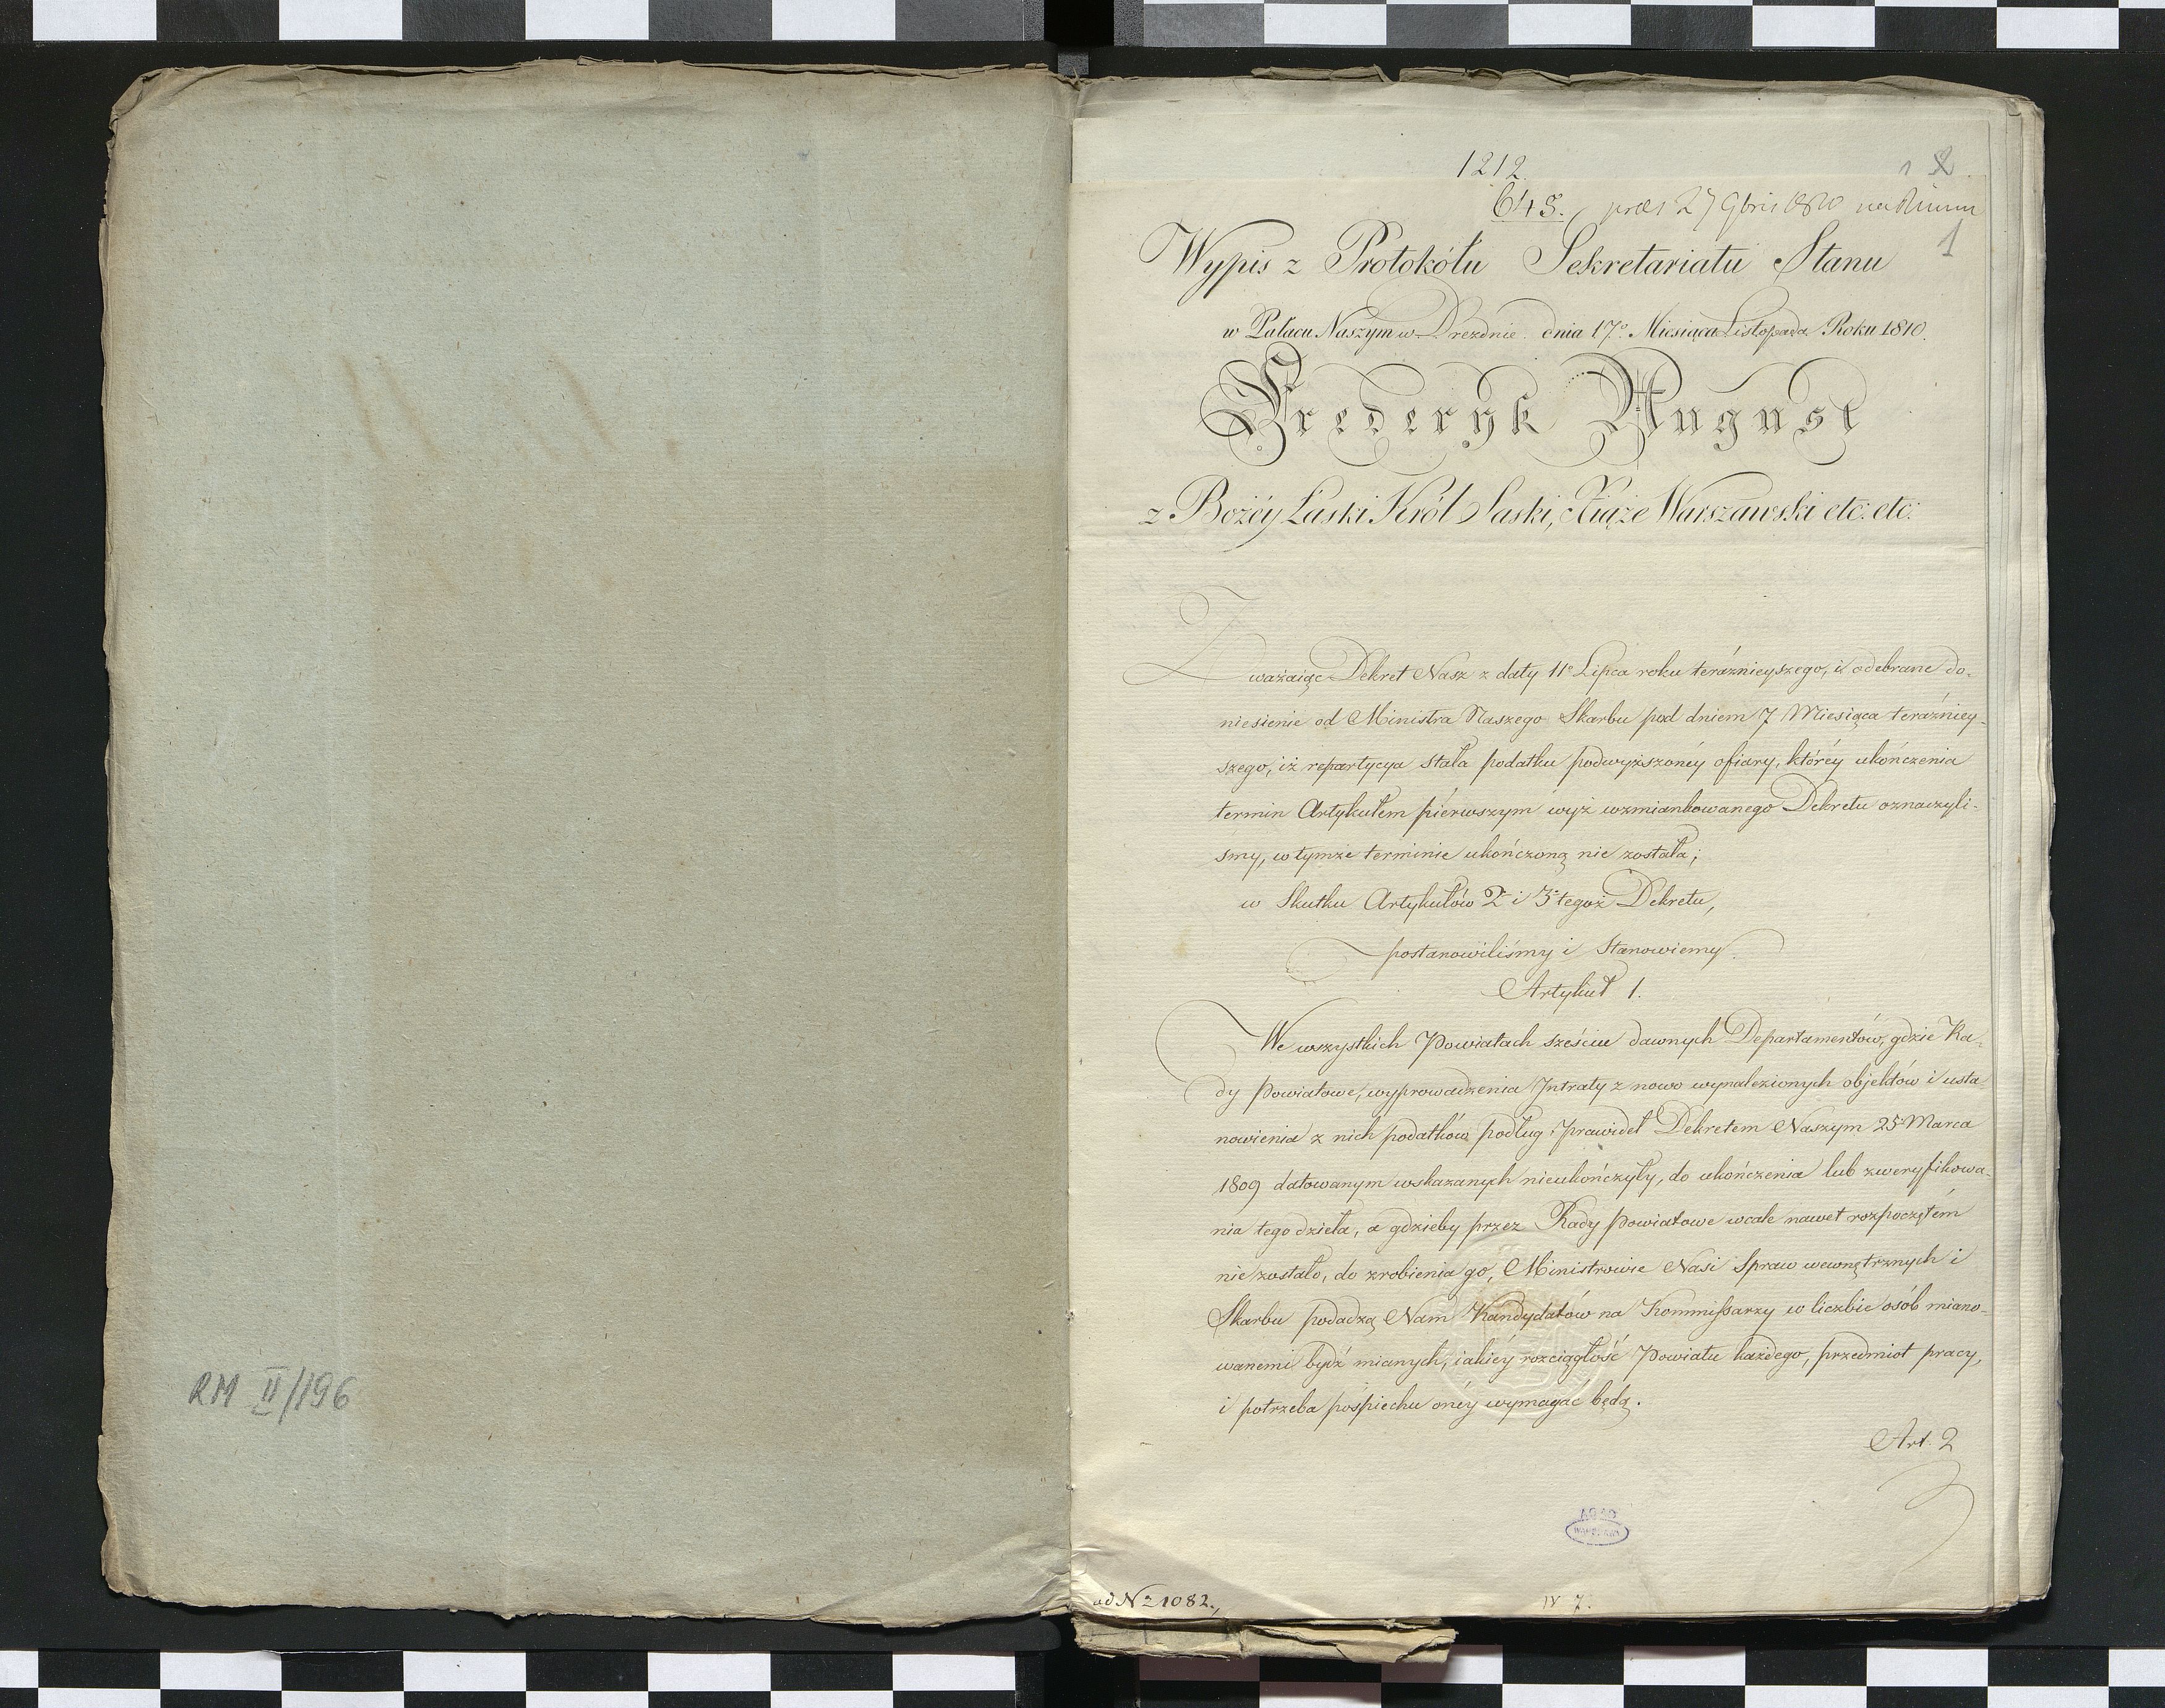 RM II/196
1212.
1 2
645. præs 27 9bris 1810
1
Wypis z Protokółu Sekretariatu Stanu
w Pałacu Naszym w Dreznie dnia 17º Miesiąca Listopada Roku 1810.
Frederyk August
z Bożéy Łaski Król Saski, Xiąże Warszawski etc: etc:
Zważaiąc Dekret Nasz z daty 11º Lipca roku teraźnieyszego, i odebrane do-
niesienie od Ministra Naszego Skarbu pod dniem 7 Miesiąca teraźniey-
szego, iż repartycya stała podatku podwyższonéy ofiary, któréy ukończenia
termin Artykułem piérwszym wyż wzmiankowanego Dekretu oznaczyli-
smy, w tymże terminie ukończoną nie została;
w Skutku Artykułów 2º i 3º tegoż Dekretu,
postanowiliśmy i Stanowiemy.
Artykuł 1.
We wszystkich Powiatach sześciu dawnych Departamentów, gdzie Ra-
dy Powiatowe, wyprowadzenia Jntraty z nowo wynalezionych objektów i usta-
nowienia z nich podatków podług prawideł Dekretem Naszym 25º Marca
1809 datowanym wskazanych nieukończyły, do ukończenia lub zweryfikowa-
nia tego dzieła, a gdzieby przez Rady Powiatowe wcale nawet rozpoczętém
nie zostało, do zrobienia go, Ministrowie Nasi Spraw wewnętrznych i
Skarbu podadzą Nam Kandydatów na Kommissarzy w liczbie osób miano-
wanemi bydź mianych, iakiéy rozciągłość Powiatu każdego, przedmiot pracy,
i potrzeba pośpiechu onéy wymagać będą.
Art. 2
AGAD
WARSZAWA
ad N 21082.